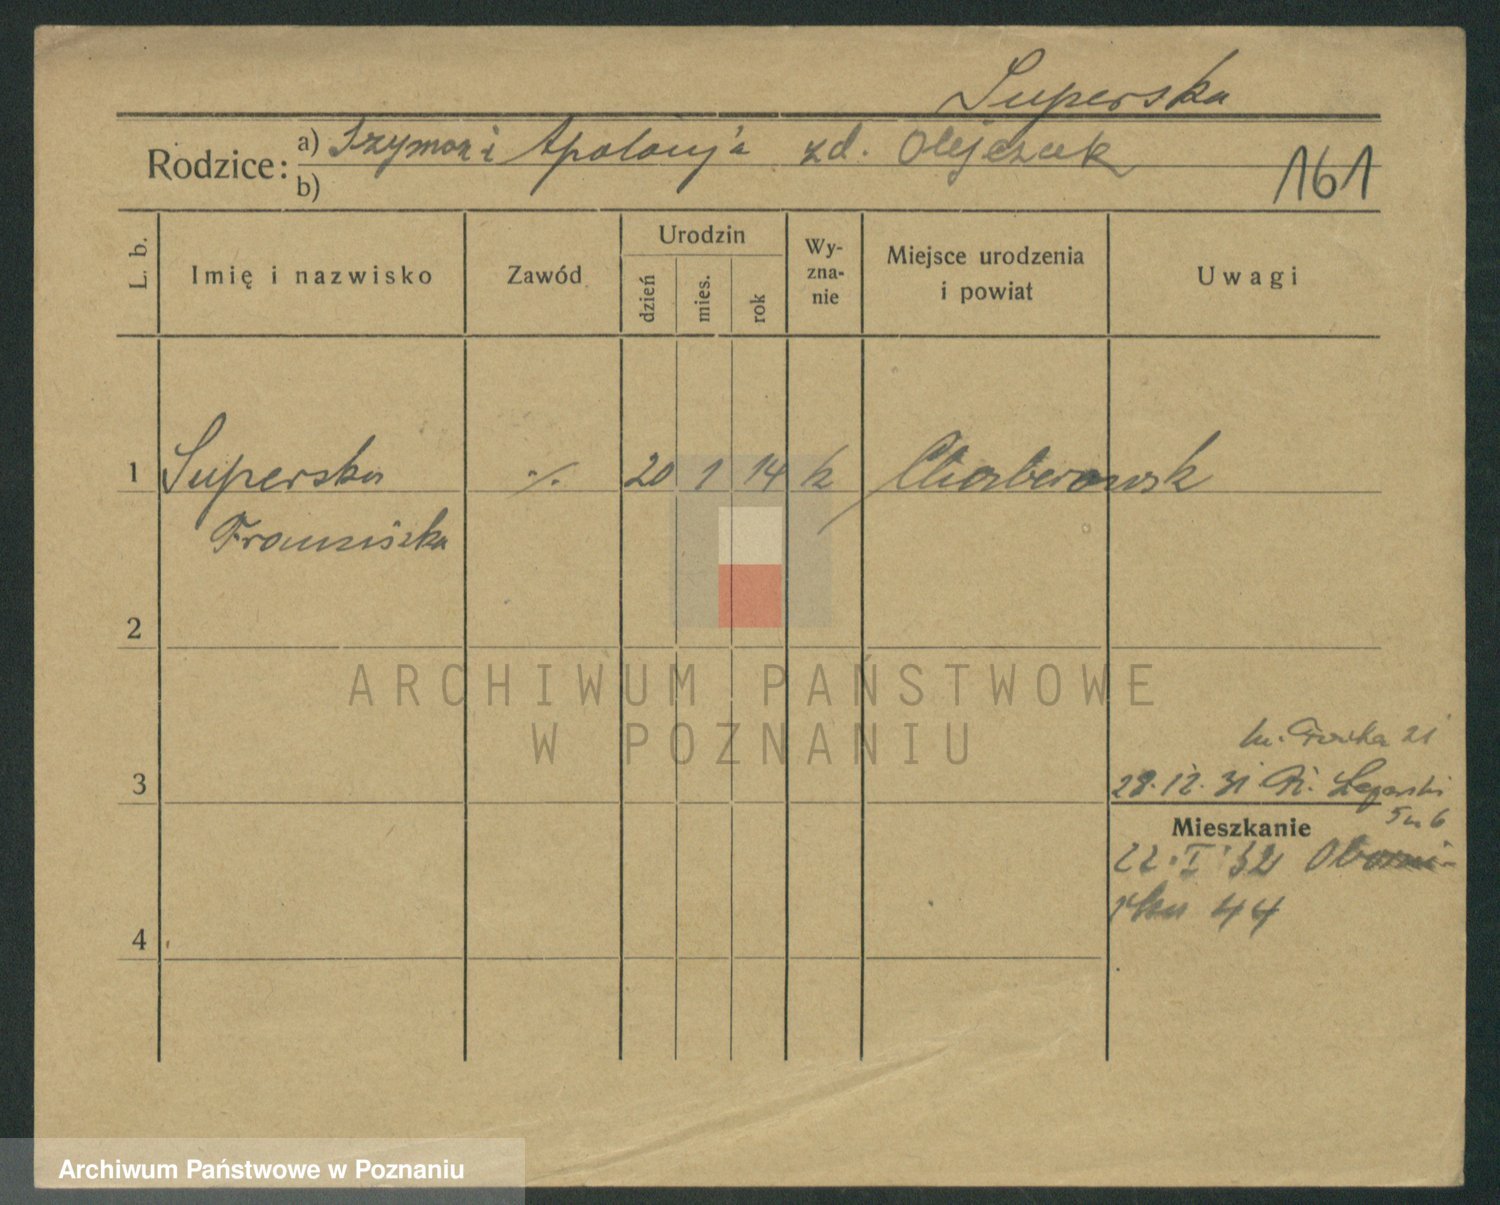 Superska
Rodzice: a) Szymon i Apolonja zd. Olejczak
b)
161
L. b.
Imię i nazwisko
Zawód
Urodzin
dzień
mies.
rok
Wy-
zna-
nie
Miejsce urodzenia
i powiat
Uwagi
1 Superska 20 1 14 k
Franciszka
2
ARCHIWUM PAŃSTWOWE
W POZNANIU
3
21
28.12.31
Mieszkanie
22.I 32 Oborni-
44
4
Archiwum Państwowe w Poznaniu